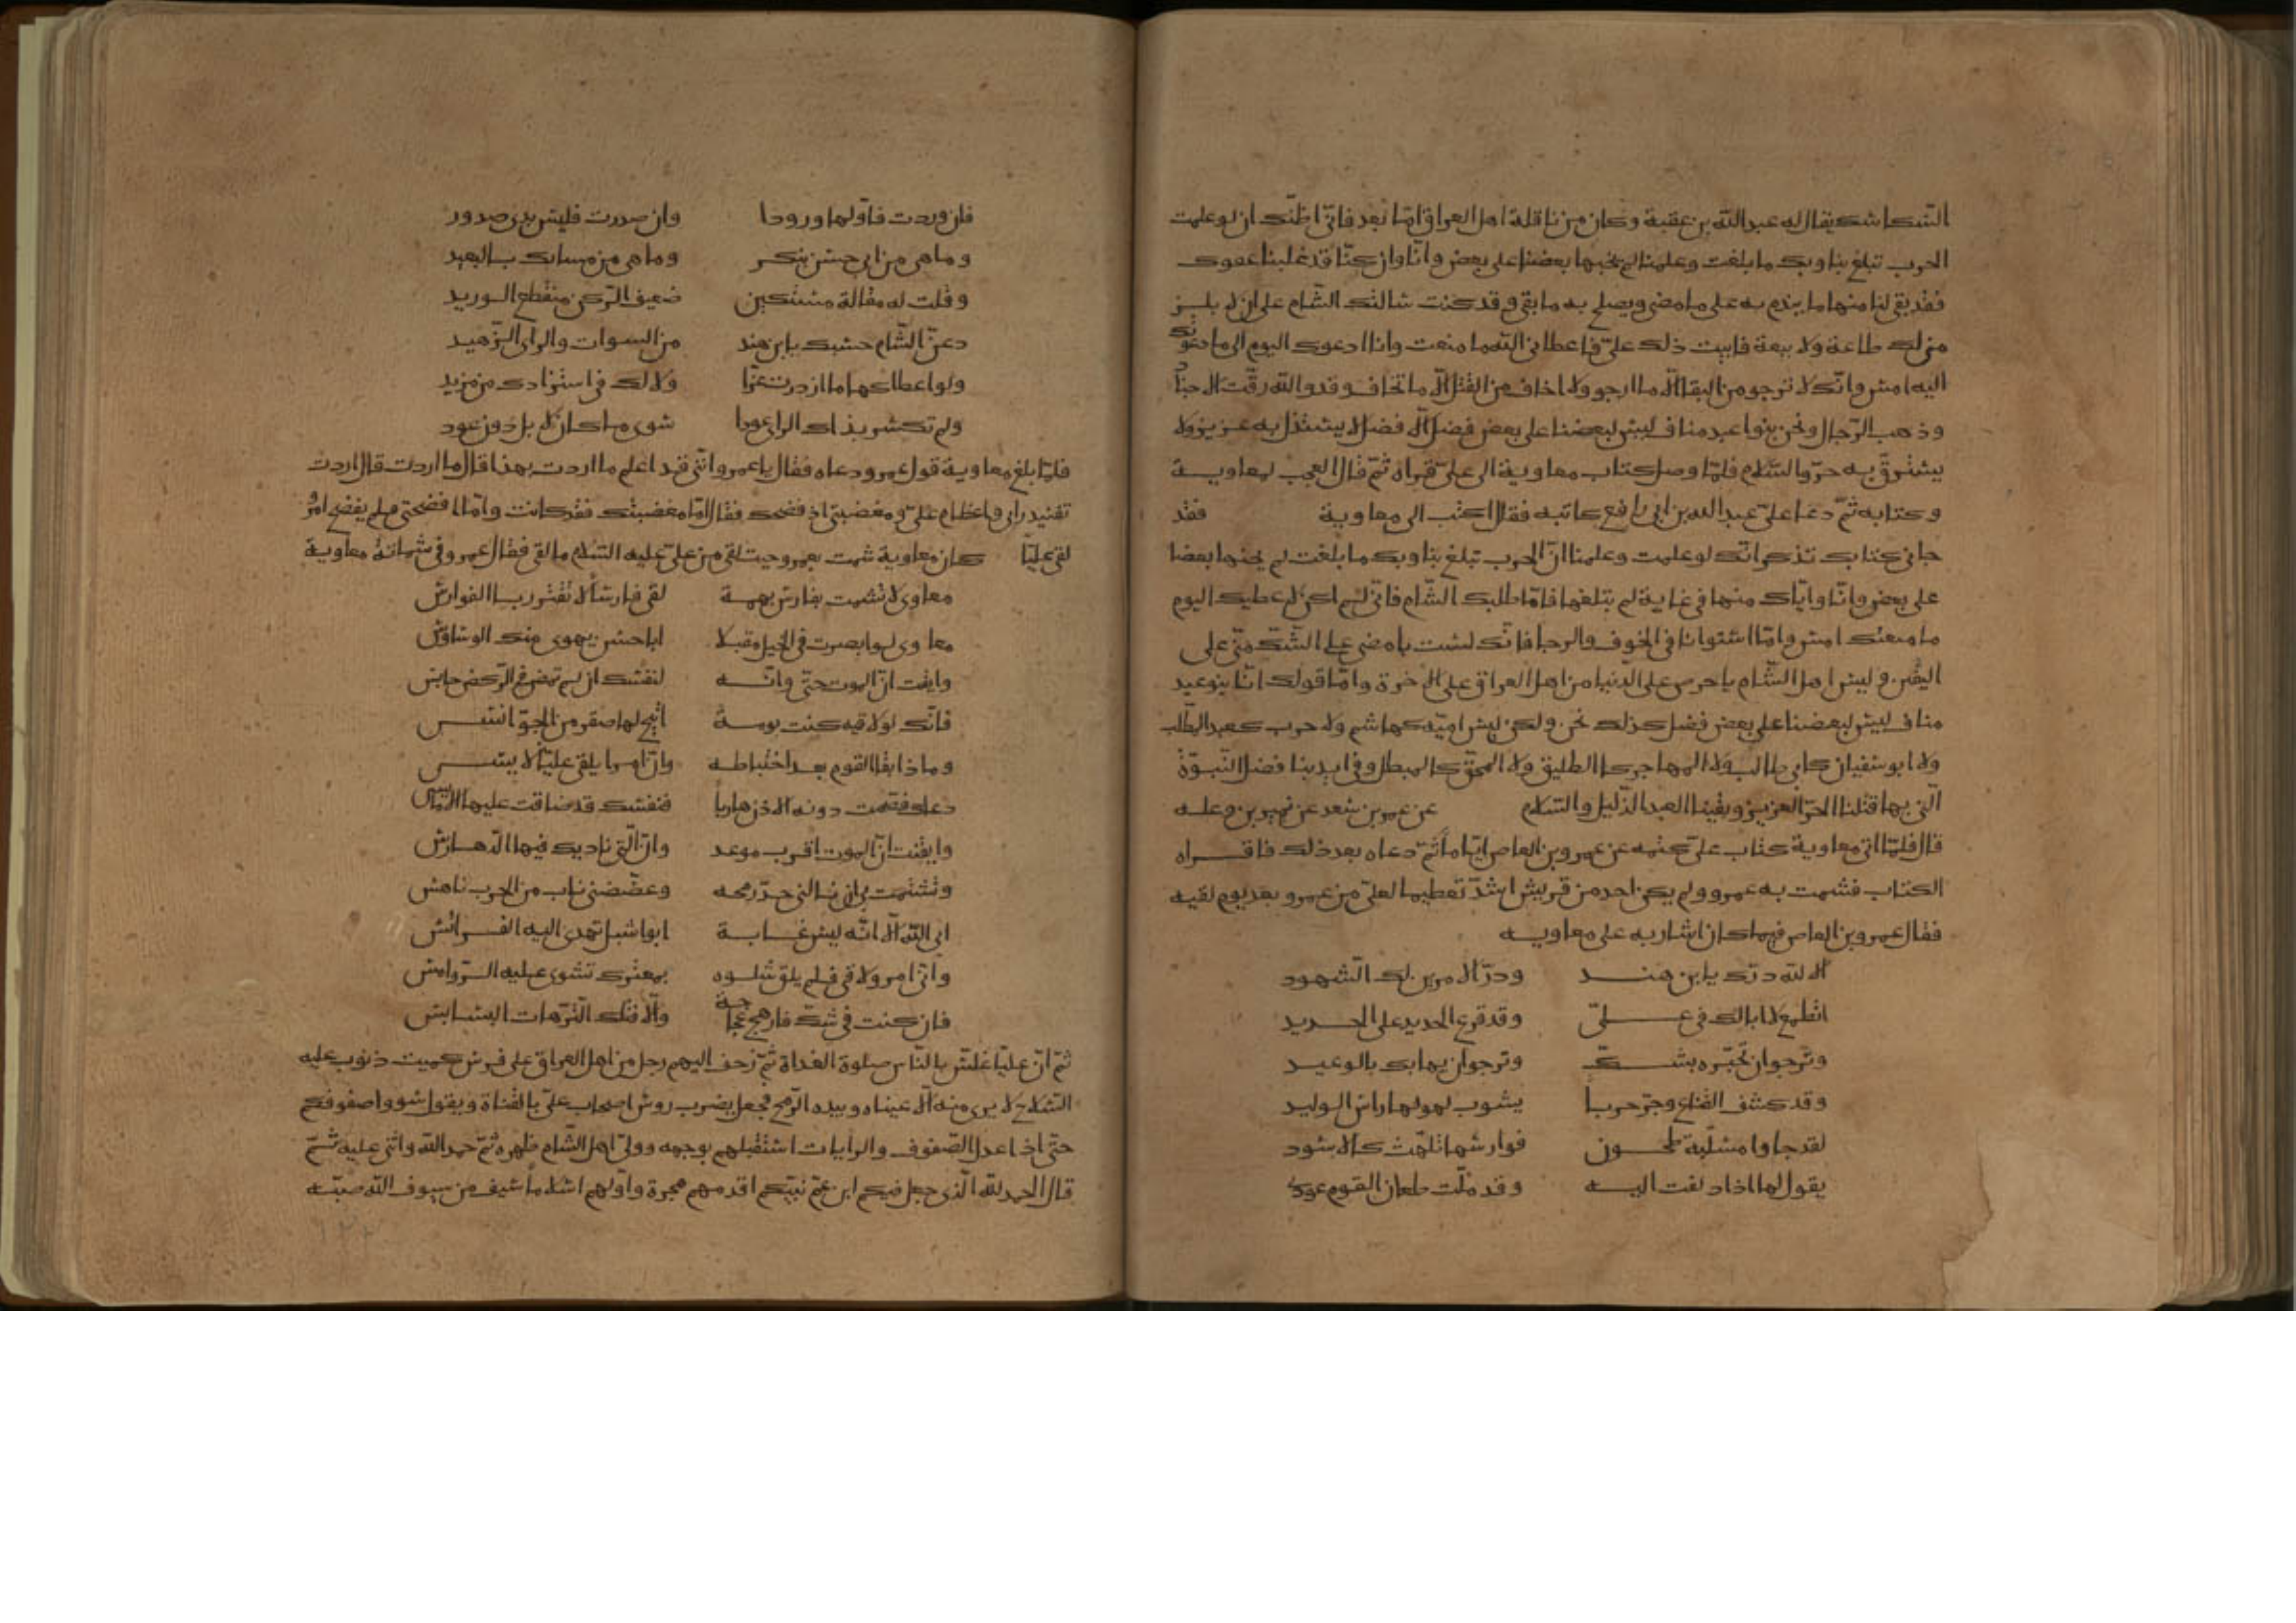 السكاسك يقال له عبد الله بن عقبة وكان من ناقلة اهل العراق اما بعد فانى اظنك ان لو علمت
الحرب تبلغ بنا وبك ما بلغت وعلمنا لم يجنها بعضنا على بعض وانا وان كنا قد غلبنا عقولـ
فقد بقى لنا منها ما يندم به على ما مضى ويصلح به ما بقى وقد كنت سالتك الشام على ان لا يلـ
منى لك طاعة ولا بيعة فابيت ذلك علىّ فاعطانى الله ما منعت وانا ادعوك اليوم الى ما دعوتك
اليه امس وانك لا ترجو من البقا الا ما ارجو ولا اخاف من القتل الا ما تخاف وقد والله رقت الاجناد
وذهب الرجال ونحن بنوا عبد مناف ليس لبعضنا على بعض فضل الا فضل لا يستذل به عزيز ولا
يسترق به حر والسلام فلما وصل كتاب معاوية الى علىّ قراه ثم قال العجب لمعاويـة
وكتابه ثم دعا علىّ عبد الله بن ابى رافع كاتبه فقال اكتب الى معاوية فقد
جانى كتابك تذكر انك لو علمت وعلمنا ان الحرب تبلغ بنا وبك ما بلغت لم يجنها بعضنا
على بعض وانا واياك منها فى غاية لم نبلغها فاما طلبك الشام فانى لم اكن لاعطيك اليوم
ما منعتك امس واما استوانا فى الخوف والرجا فانك لست بامضى على الشك منى على
اليقين وليس اهل الشام باحرص على الدنيا من اهل العراق على الاخرة واما قولك انا بنو عبد
مناف ليس لبعضنا على بعض فضل كذلك نحن ولكن ليس اميه كهاشم ولا حرب كعبد المطلب
ولا ابو سفيان كابى طالب ولا المهاجر كالطليق ولا المحق كالمبطل وفى ايدينا فضل النبوّة
التى بها قتلنا الحر العزيز وبقينا العبد الذليل والسلام عن عمر بن سعد عن نمير بن وعلـه
قال فلما اتى معاوية كتاب علىّ كتمه عن عمرو بن العاص اياما ثم دعاه بعد ذلك فاقـراه
الكتاب فشمت به عمرو ولم يكن احد من قريش اشد تعظيما لعلى من عمرو بعد يوم لقيه
فقال عمرو بن العاص فيما كان اشار به على معاويـه
الا لله درك يا ابن هنـد ودر الامرين لك الشهود
اتطمع لا ابا لك فى علـىّ وقد قرع الحديد على الحـديد
وترجوا ان تخبّره بشـك وترجوا ان يهابك بالوعيـد
وقد كشف القناع وجر حربا يشوب لهولها راس الوليد
لقد جاوا مسلّبة طحـون فوارسها تلهّث كالاسود
يقول لها اذا دلفت اليـه وقد ملّت طعان القوم عودى
فان وردت فاولها ورودا وان صدرت فليس بذى صدور
وما هى من ابى حسن بنكـر وما هى من مساك بـالبعيد
وقلت له مقالة مستكين ضعيف الركن منقطع الـوريد
دعن الشام حسبك يا ابن هند من السوات والراى الزهيد
ولو اعطاكها ما ازددت عزّا ولا لك فى استزادك من مزيد
ولم تكسر بذاك الراى عودا سوى ما كان لا بل دون عود
فلما بلغ معاوية قول عمرو دعاه فقال يا عمرو اننى قد اعلم ما اردت بهذا قال ما اردت قال اردت
تفنيد رايى واعظام علىّ ومغضبتى اذ فضحك فقال اما مغضبتك فقد كانت واما افضحتى فلم يفضح امرؤ
لقى عليّا كان معاوية شمت بعمرو حيث لقى من علىّ عليه السلام ما لقى فقال عمرو فى شماتة معاوية
معاوى لا تشمت بفارس بهمـة لقى فارسا لا تفتر ربـا الفوارس
معاوى لو ابصرت فى الخيل مقبلا ابا حسن يهوى منك الوساوس
وايقنت ان الموت حق وانـه لنفسك ان لم تمض فى الركض حابس
فانك لو لاقيه كنت بومـة اتيح لها صقر من الجو انـس
وما ذا بقا القوم بعد اختباطـه وان امرا يلقى عليا لا ييئـس
دعاك فصمت دونه الاذن هاربا فنفسك قد ضاقت عليها الامالس
وايقنت ان الموت اقرب موعد وان التى ناديك فيها الدهـارس
وتشتمت بى ان نـالنى حد رمحه وعضّضنى ناب من الحرب ناهس
ابى الله الا انه ليث غـابـة ابو اشبل تهدى اليه الفـرائس
وانى امر ولا قى فلم يلق شلـوه بمعترك تسوى عليه الـروامس
فان كنت فى شك فارهج عجاجة والا فتلك الترهات البسـابس
ثم ان عليا غلّس بالناس صلوة الغداة ثم زحف اليهم رجل من اهل العراق على فرس كميت ذنوب عليه
السلاح لا يرى منه الا عيناه وبيده الرمح فجعل يضرب روس اصحاب علىّ بالقناة ويقول سووا صفوفكم
حتى اذا عدل الصفوف والرايات استقبلهم بوجهه وولى اهل الشام ظهره ثم حمد الله واثنى عليه ثـم
قال الحمد لله الذى جعل فيكم ابن عم نبيكم اقدمهم هجرة واولهم اسلاما سيف من سيوف الله صبّـه
١٢٢